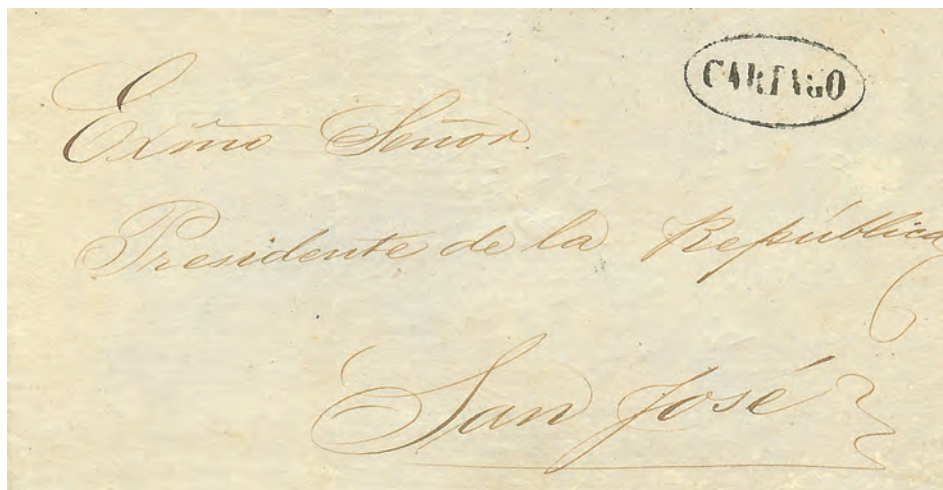 CARTAGO
Exmo Señor.
Presidente de la República
San José